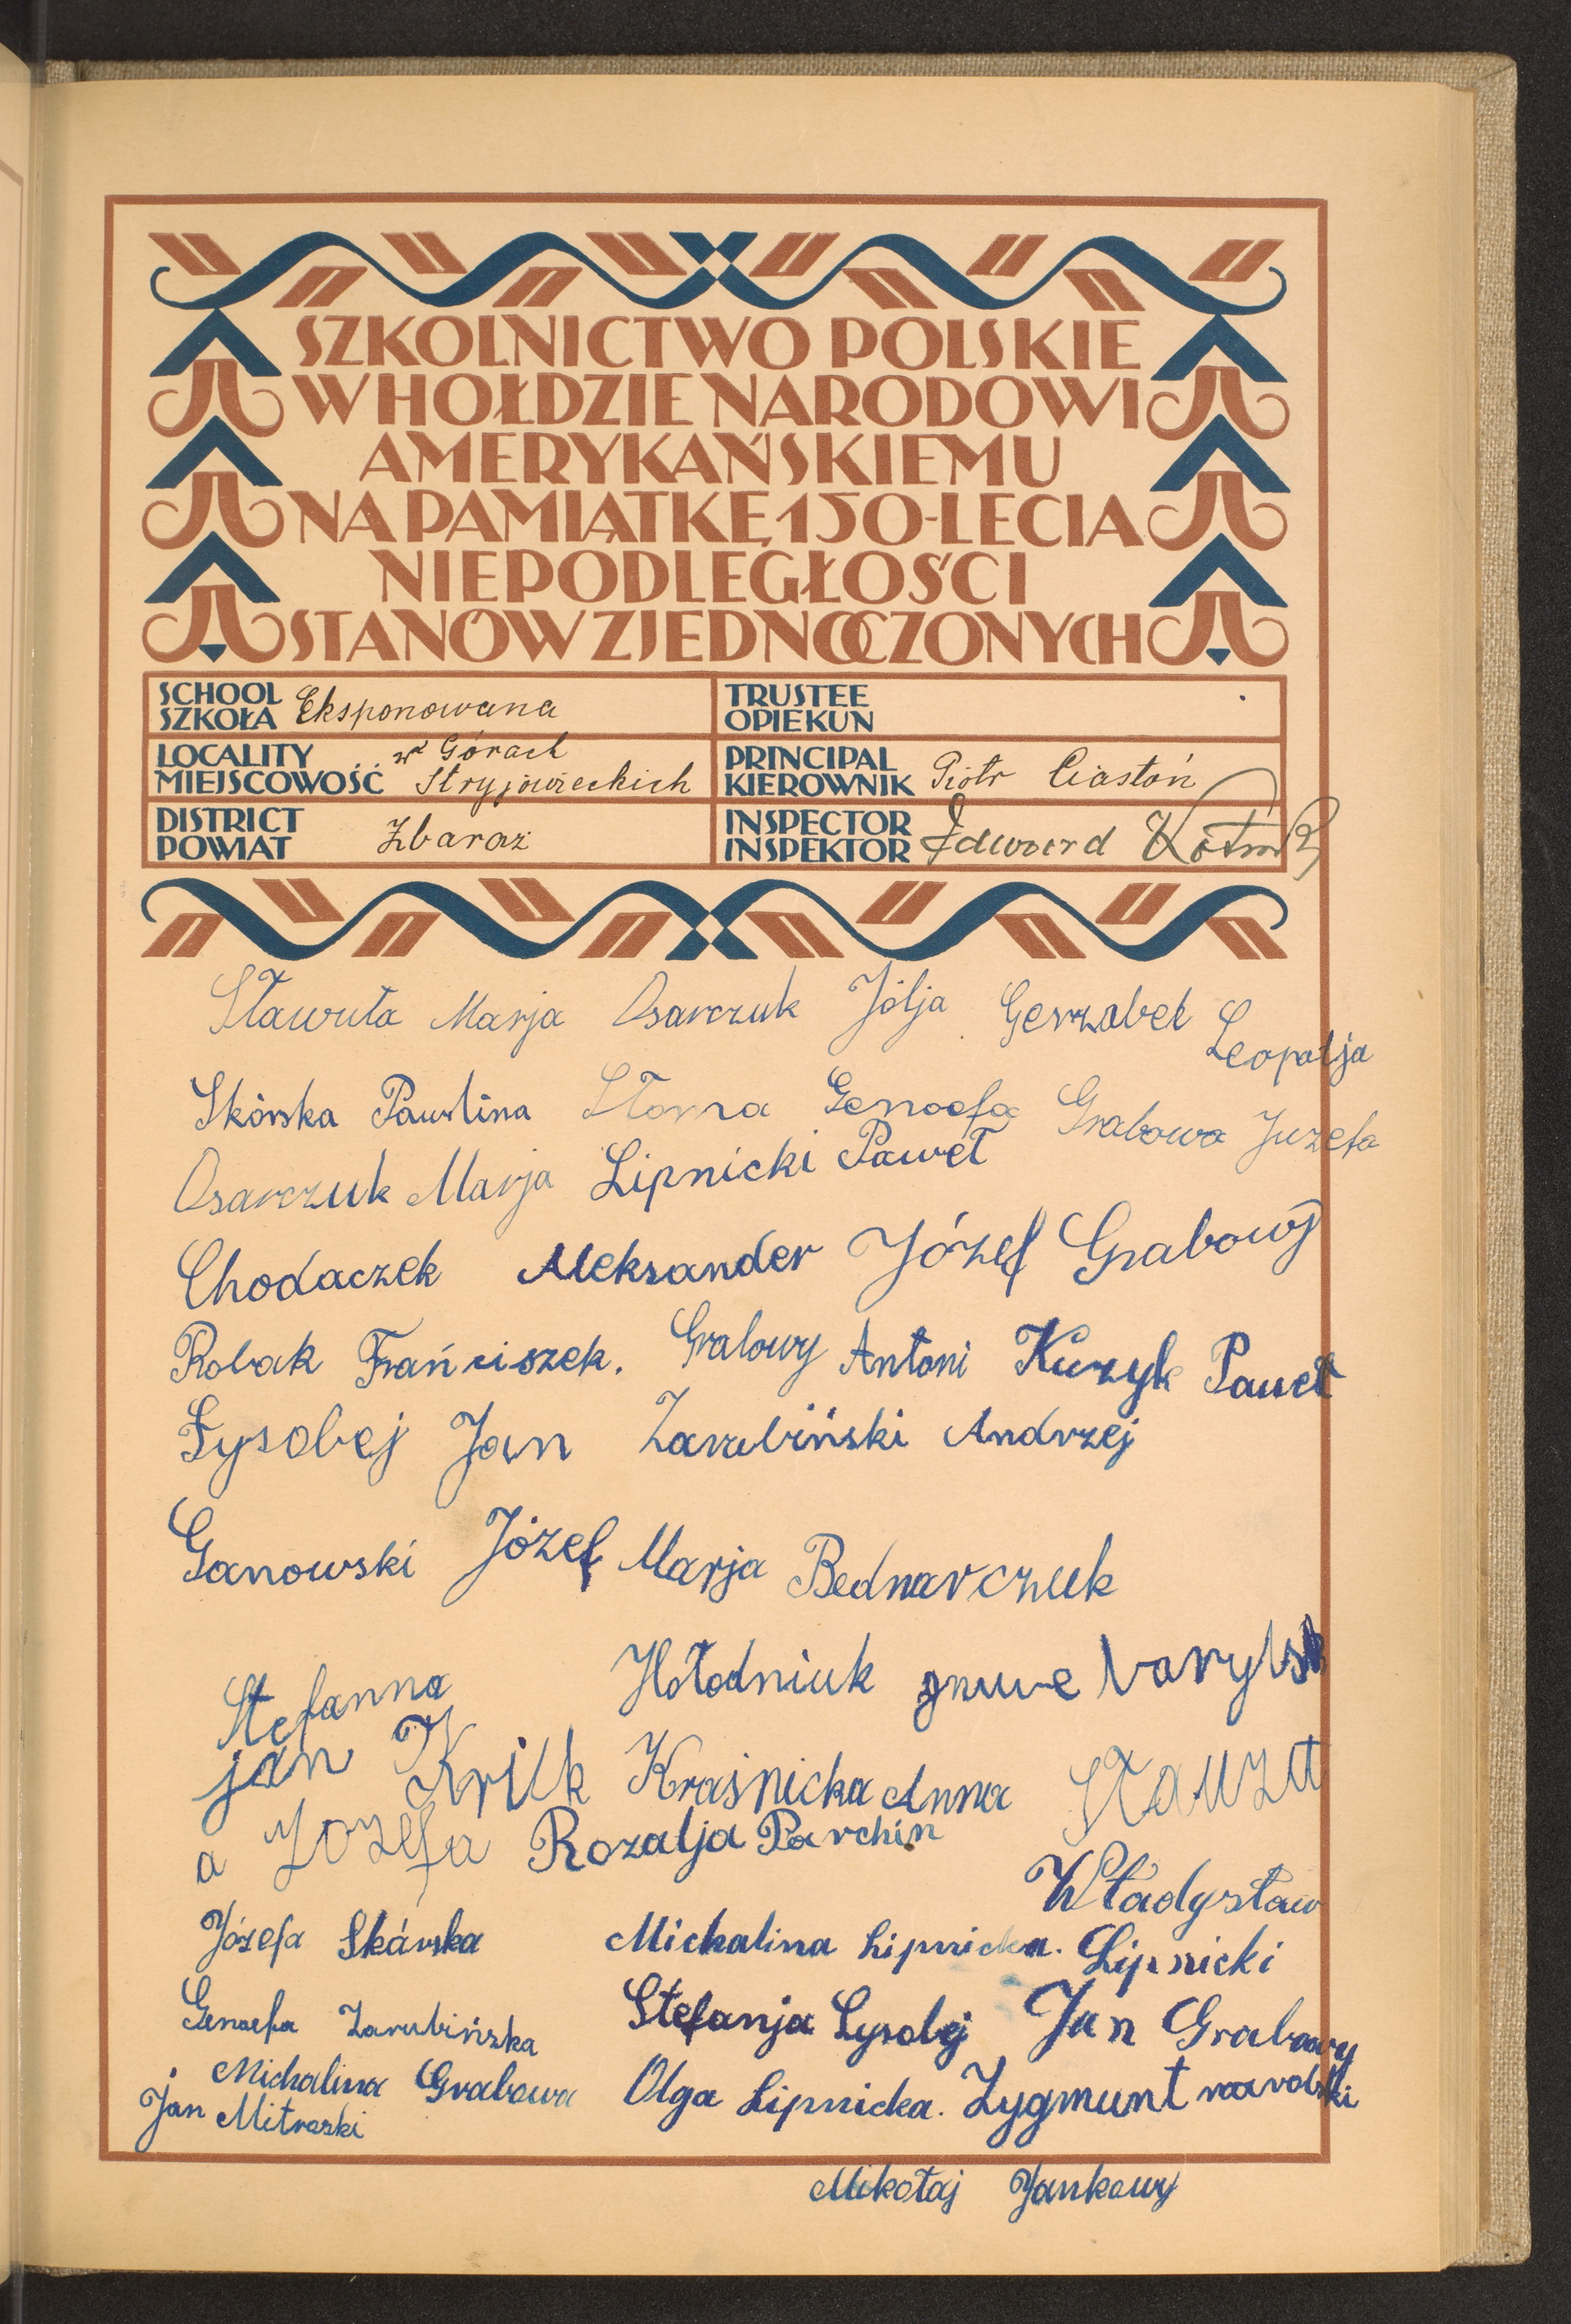 SZKOLNICTWO POLSKIE
W HOŁDZIE NARODOWI
AMERYKAŃSKIEMU
NA PAMIĄTKĘ 150-LECIA
NIEPODLEGŁOŚCI
STANÓW ZJEDNOCZONYCH
SCHOOL
SZKOŁA Eksponowana
TRUSTEE
OPIEKUN
LOCALITY
MIEJSCOWOŚĆ w Górach
Stryjowieckich
PRINCIPAL
KIEROWNIK Piotr Ciastoń
DISTRICT
POWIAT Zbaraż
INSPECTOR
INSPEKTOR Edward
Sławuta Marja Osarczuk Jólja Gerzabek
Leopolja
Skórska Pawlina Słowra Genoefa Grabowa Juzefa
Osarczuk Marja Lipnicki Paweł
Chodaczek Aleksander Józef Grabowy
Robak Frańciszek. Grabowy Antoni Kuzyk Paweł
Łysobej Jan Zarubiński Andrzej
Ganowski Józef Marja Bednarczuk
Stefanna Hołodniuk
jan Krilk Kraśnicka Anna
a Jozefa Rozalja Parchin
Władysław
Józefa Skórska Michalina Lipnicka. Lipnicki
Genoefa Zarubińska Stefanja Łysobej Jan Grabowy
Michalina Grabowa Olga Lipnicka. Zygmunt
Jan Mitraski
Mikołaj Jankowy